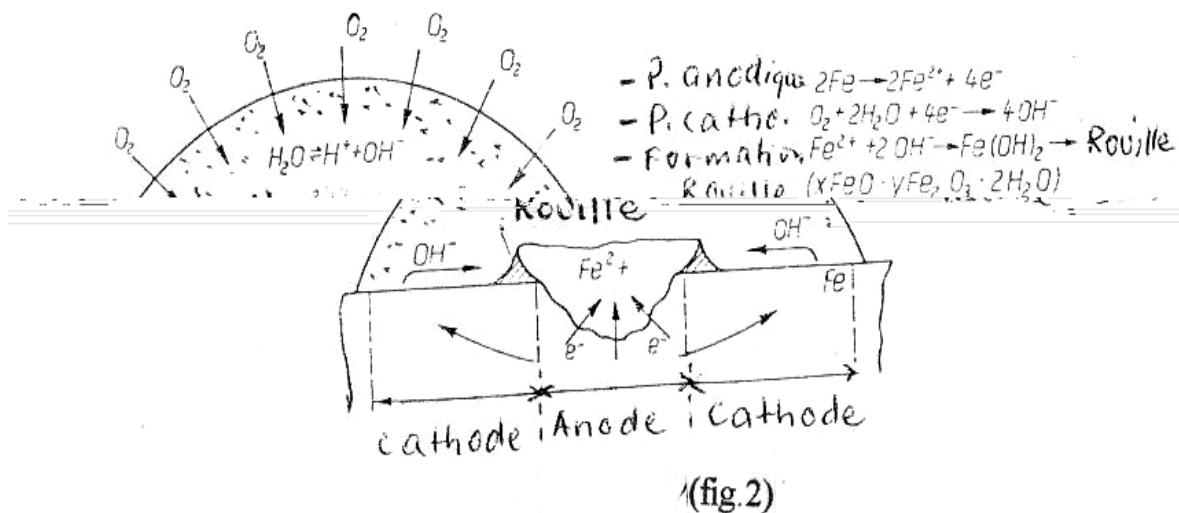 O₂ O₂ O₂ O₂ O₂ O₂ O₂ O₂
H₂O ⇌ H⁺ + OH⁻
- P. anodique 2Fe → 2Fe²⁺ + 4e⁻
- P. catho. O₂ + 2H₂O + 4e⁻ → 4OH⁻
- Formation Fe²⁺ + 2OH⁻ → Fe(OH)₂ → Rouille
Rouille (xFeO · yFe₂O₃ · 2H₂O)
Rouille
OH⁻ Fe²⁺ OH⁻
Fe
e⁻ e⁻
Cathode Anode Cathode
(fig.2)